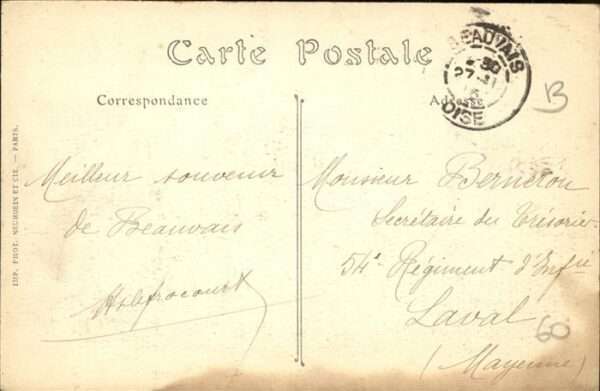 Carte Postale
Correspondance
Adresse
BEAUVAIS
OISE
B
Meilleur souvenir
de Beauvais
Monsieur Berneron
Secrétaire du Trésorier
54e Régiment d'Infie
Laval
(Mayenne)
60
IMP. PHOT. NEURDEIN ET CIE. — PARIS.